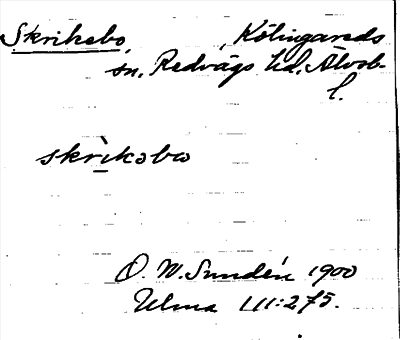 Skrikebo, Kölingareds
sn, Redvägs hd, Älvsb.
l.
skrìkəbω
O. W. Sundén 1900
Ulma 111:275.